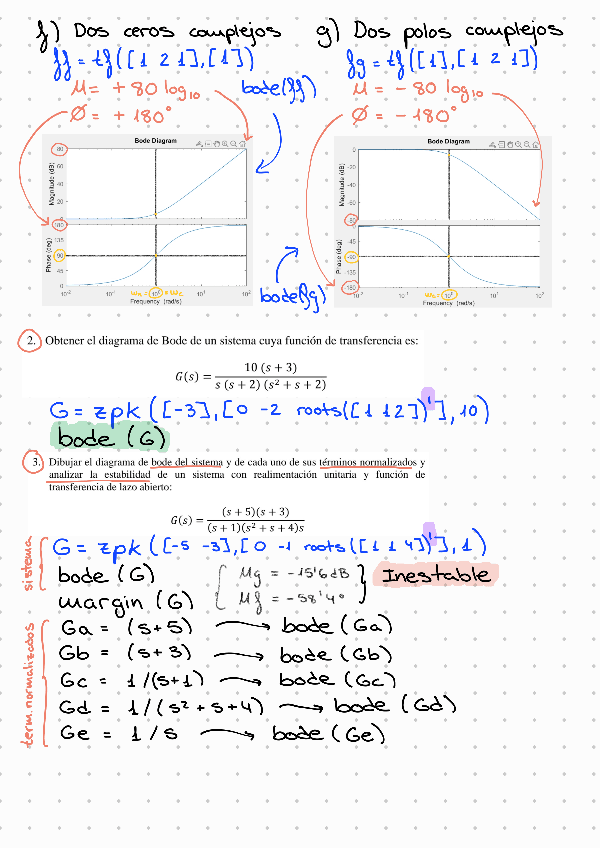 f) Dos ceros complejos
ff = tf([1 2 1],[1])
M = + 80 log10
Ø = + 180°
bode(ff)
g) Dos polos complejos
fg = tf([1],[1 2 1])
M = - 80 log10
Ø = - 180°
Bode Diagram
Magnitude (dB)
80
60
40
20
0
Phase (deg)
180
135
90
45
0
10-2
10-1
100
101
102
Frequency (rad/s)
bode(fg)
Bode Diagram
Magnitude (dB)
0
-20
-40
-60
-80
Phase (deg)
-45
-90
-135
-180
10-2
10-1
100
101
102
Frequency (rad/s)
2. Obtener el diagrama de Bode de un sistema cuya función de transferencia es:
G(s) = 10 (s + 3) / s (s + 2) (s² + s + 2)
G = zpk ([-3],[0 -2 roots([1 1 2])'],10)
bode (G)
3. Dibujar el diagrama de bode del sistema y de cada uno de sus términos normalizados y
analizar la estabilidad de un sistema con realimentación unitaria y función de
transferencia de lazo abierto:
G(s) = (s + 5)(s + 3) / (s + 1)(s² + s + 4)s
sistema
G = zpk ([-5 -3],[0 -1 roots([1 1 4])'],1)
bode (G)
margin (G)
Mg = -15'6 dB
Mf = -58'4°
Inestable
term. normalizados
Ga = (s+5) → bode (Ga)
Gb = (s+3) → bode (Gb)
Gc = 1/(s+1) → bode (Gc)
Gd = 1/(s²+s+4) → bode (Gd)
Ge = 1/s → bode (Ge)